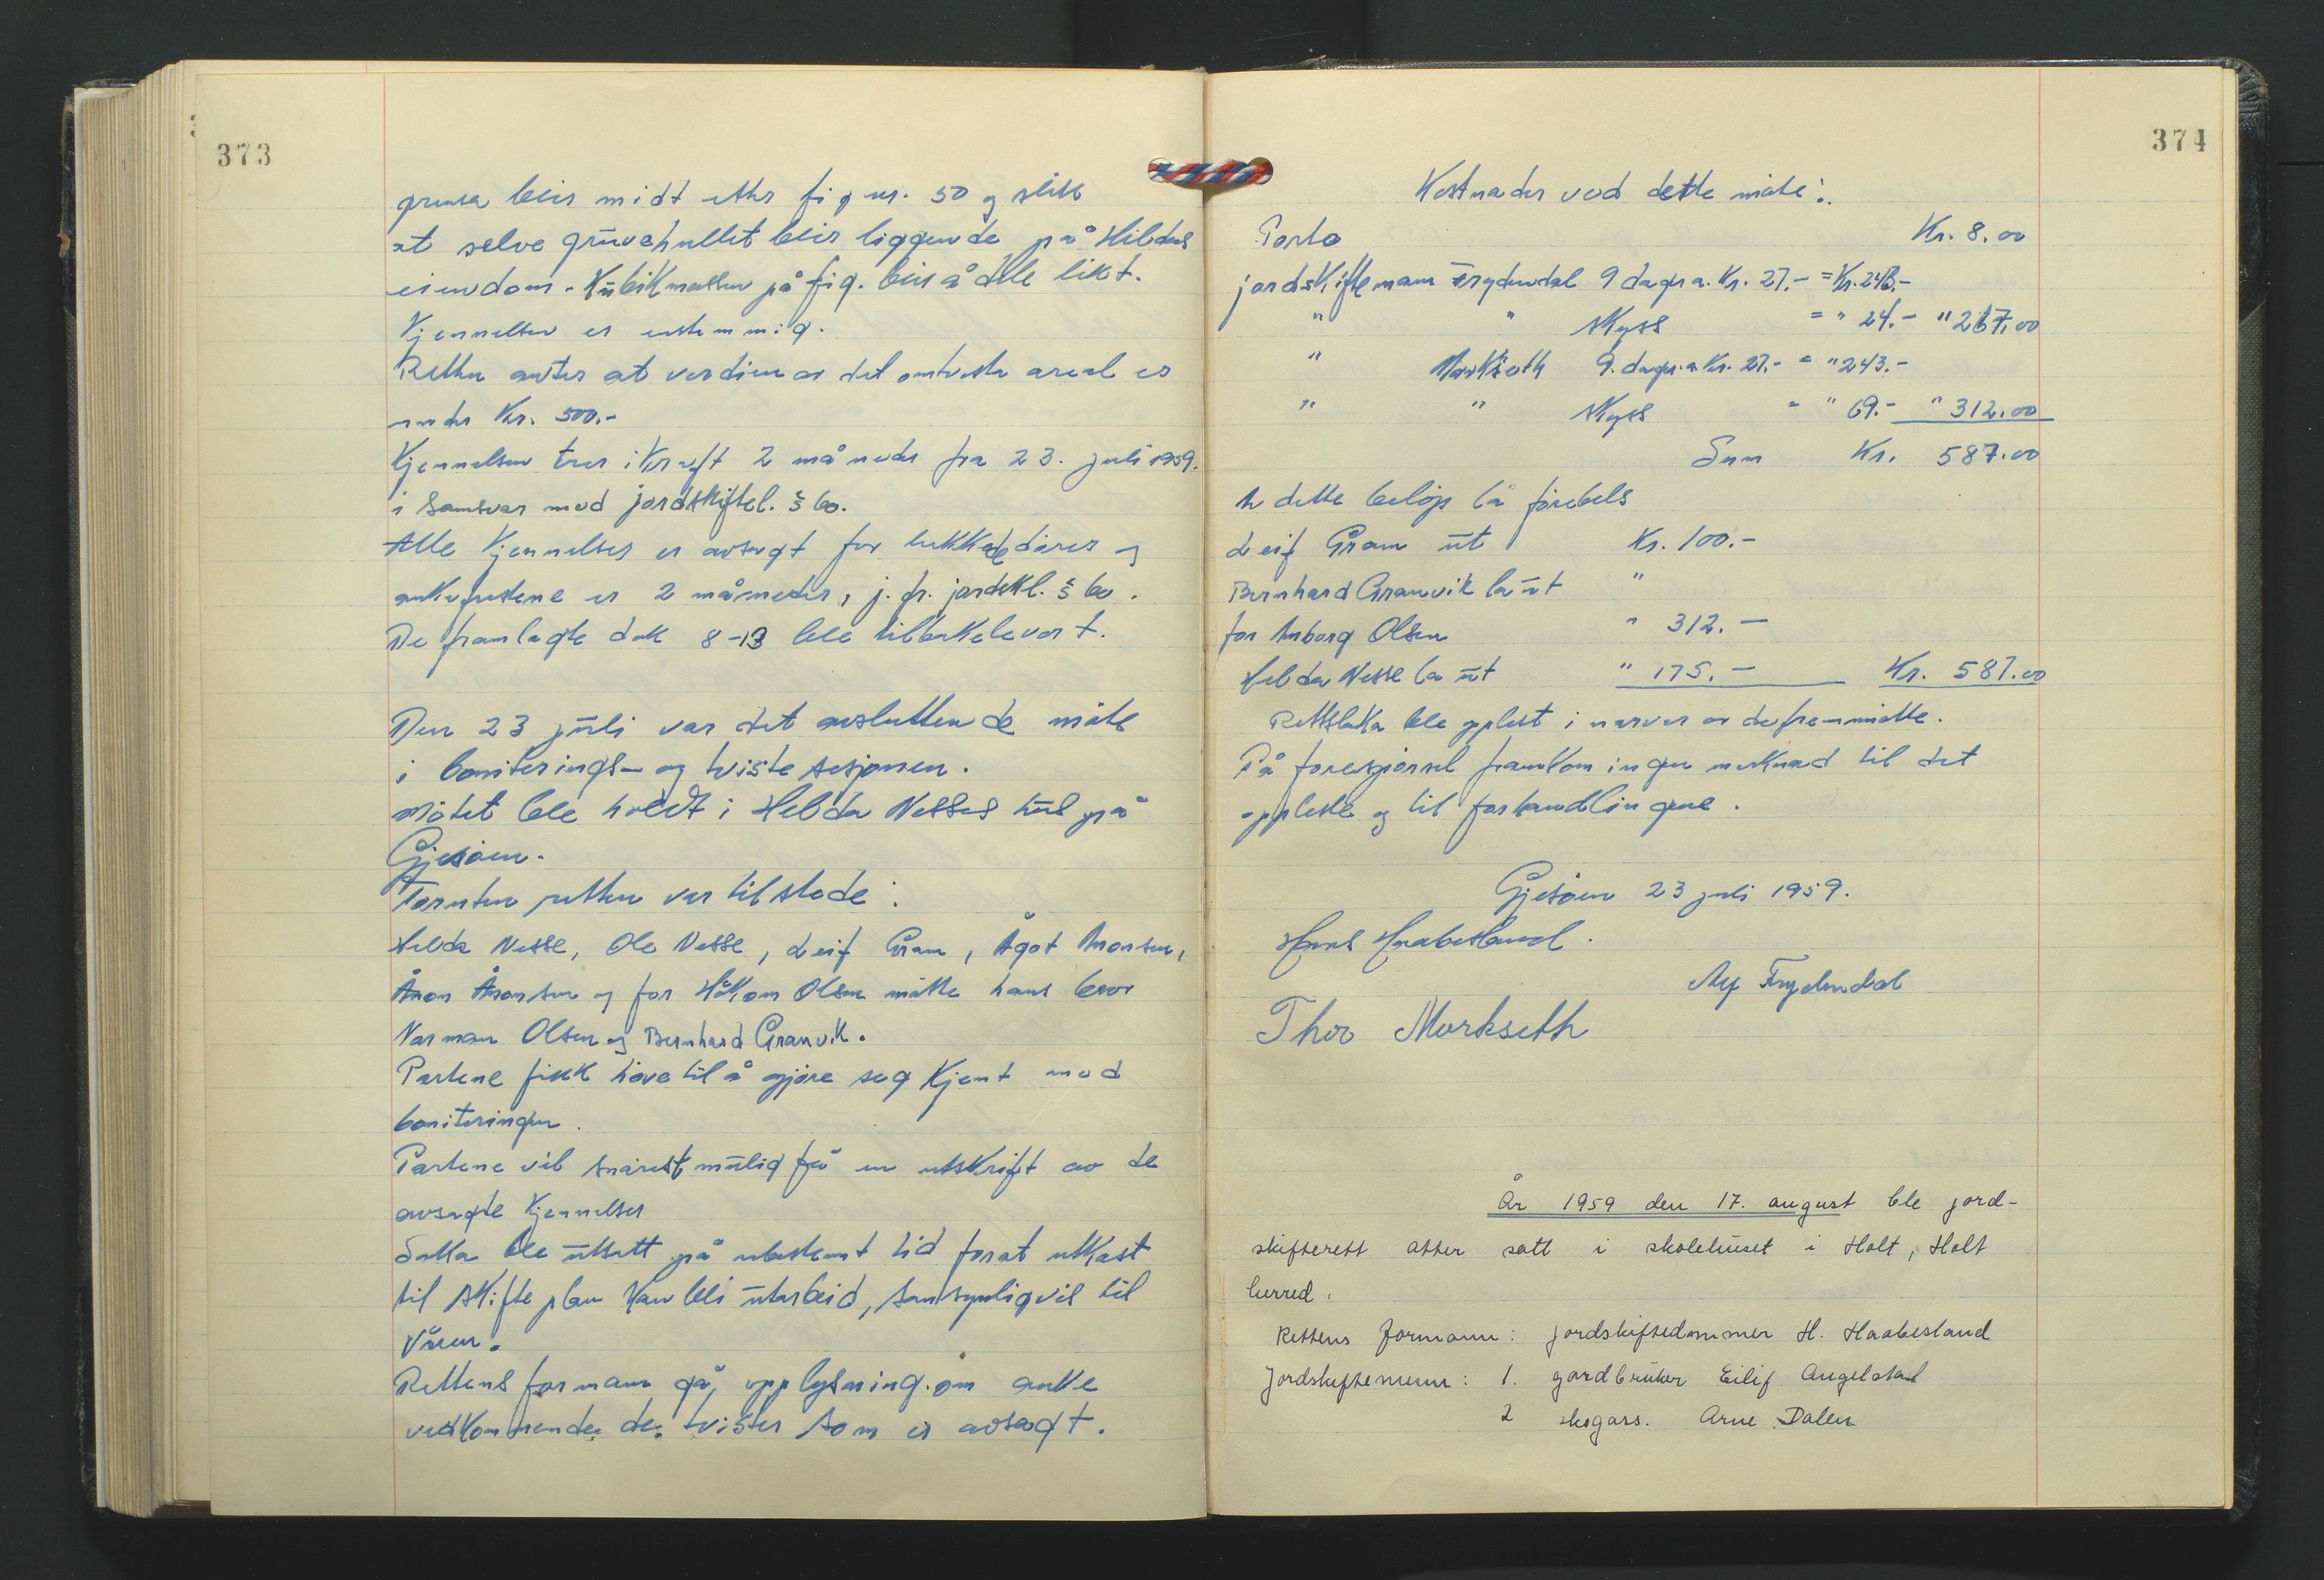 373
grensa blir midt etter fig nr. 50 og slik
at selve gruvehullet blir liggende på Hildas
eiendom. Kubikmassen på fig. blir å dele likt.
Kjennelsen er enstemmig.
Retten antar at verdien av det omtvista areal er
under Kr. 500.-
Kjennelsen trer i Kraft 2 måneder fra 23. juli 1959.
i samsvar med jordskiftel. § 60.
Alle Kjennelser er avsagt for lukkede dører og
ankefristene er 2 måneder, j.fr. jordskl. § 60.
De framlagte dok 8-13 ble tilbakelevert.
Den 23 juli var det avsluttende møte
i boniterings- og tviste sesjonen.
Møtet ble holdt i Hilda Nesses hus på
Gjesøen.
Foruten retten var tilstede:
Hilda Nesse, Ole Nesse, Leif Gram, Ågot Aronsen,
Aron Aronsen og for Håkon Olsen møtte hans bror
Norman Olsen og Bernhard Granvik.
Partene fikk høve til å gjøre seg Kjent med
boniteringen.
Partene vil snarest mulig få en utskrift av de
avsagte Kjennelser
Saka ble utsatt på ubestemt tid forat utkast
til skifteplan Kan bli utarbeid, sansynligvis til
våren.
Rettens formann ga, opplysning om anke
vedkommende de tvister som er avsagt.
374
Kostnader ved dette møte:
Porto Kr. 8.00
jordskiftemann Frydendal 9 dager a. Kr. 27.- = Kr. 243.-
" " skyss = " 24.- " 267.00
" Morkseth 9. dager a Kr. 27.- = " 243.-
" " skyss = " 69.- " 312.00
Sum Kr. 587.00
Av dette beløp la førebels
Leif Gram ut Kr. 100.-
Bernhard Granvik la ut "
for Olsen " 312.-
Hilda Nesse la ut " 175.- Kr. 587.00
Rettsboka ble opplest i nærvær av de frammøtte.
På forespørsel framkom ingen merknad til det
oppleste og til forhandlingene.
Gjesøen 23 juli 1959.
Hans Haabesland.
Alf Frydendal
Thor Morkseth
År 1959 den 17. august ble jord-
skifterett atter satt i skolehuset i Holt, Holt
herred.
Rettens formann: jordskiftedommer H. Haabesland
Jordskiftemenn: 1. gardbruker Eilif Angelstad
2 skogars. Arne Dalen